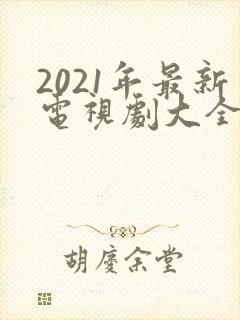 2021年最新
電視劇大全
胡慶余堂